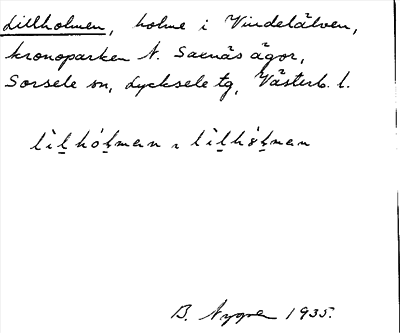 Lillholmen, holme i Vindelälven,
kronoparken N. Saxnäs ägor,
Sorsele sn, Lycksele tg, Västerb. l.
B. Nygren 1935.